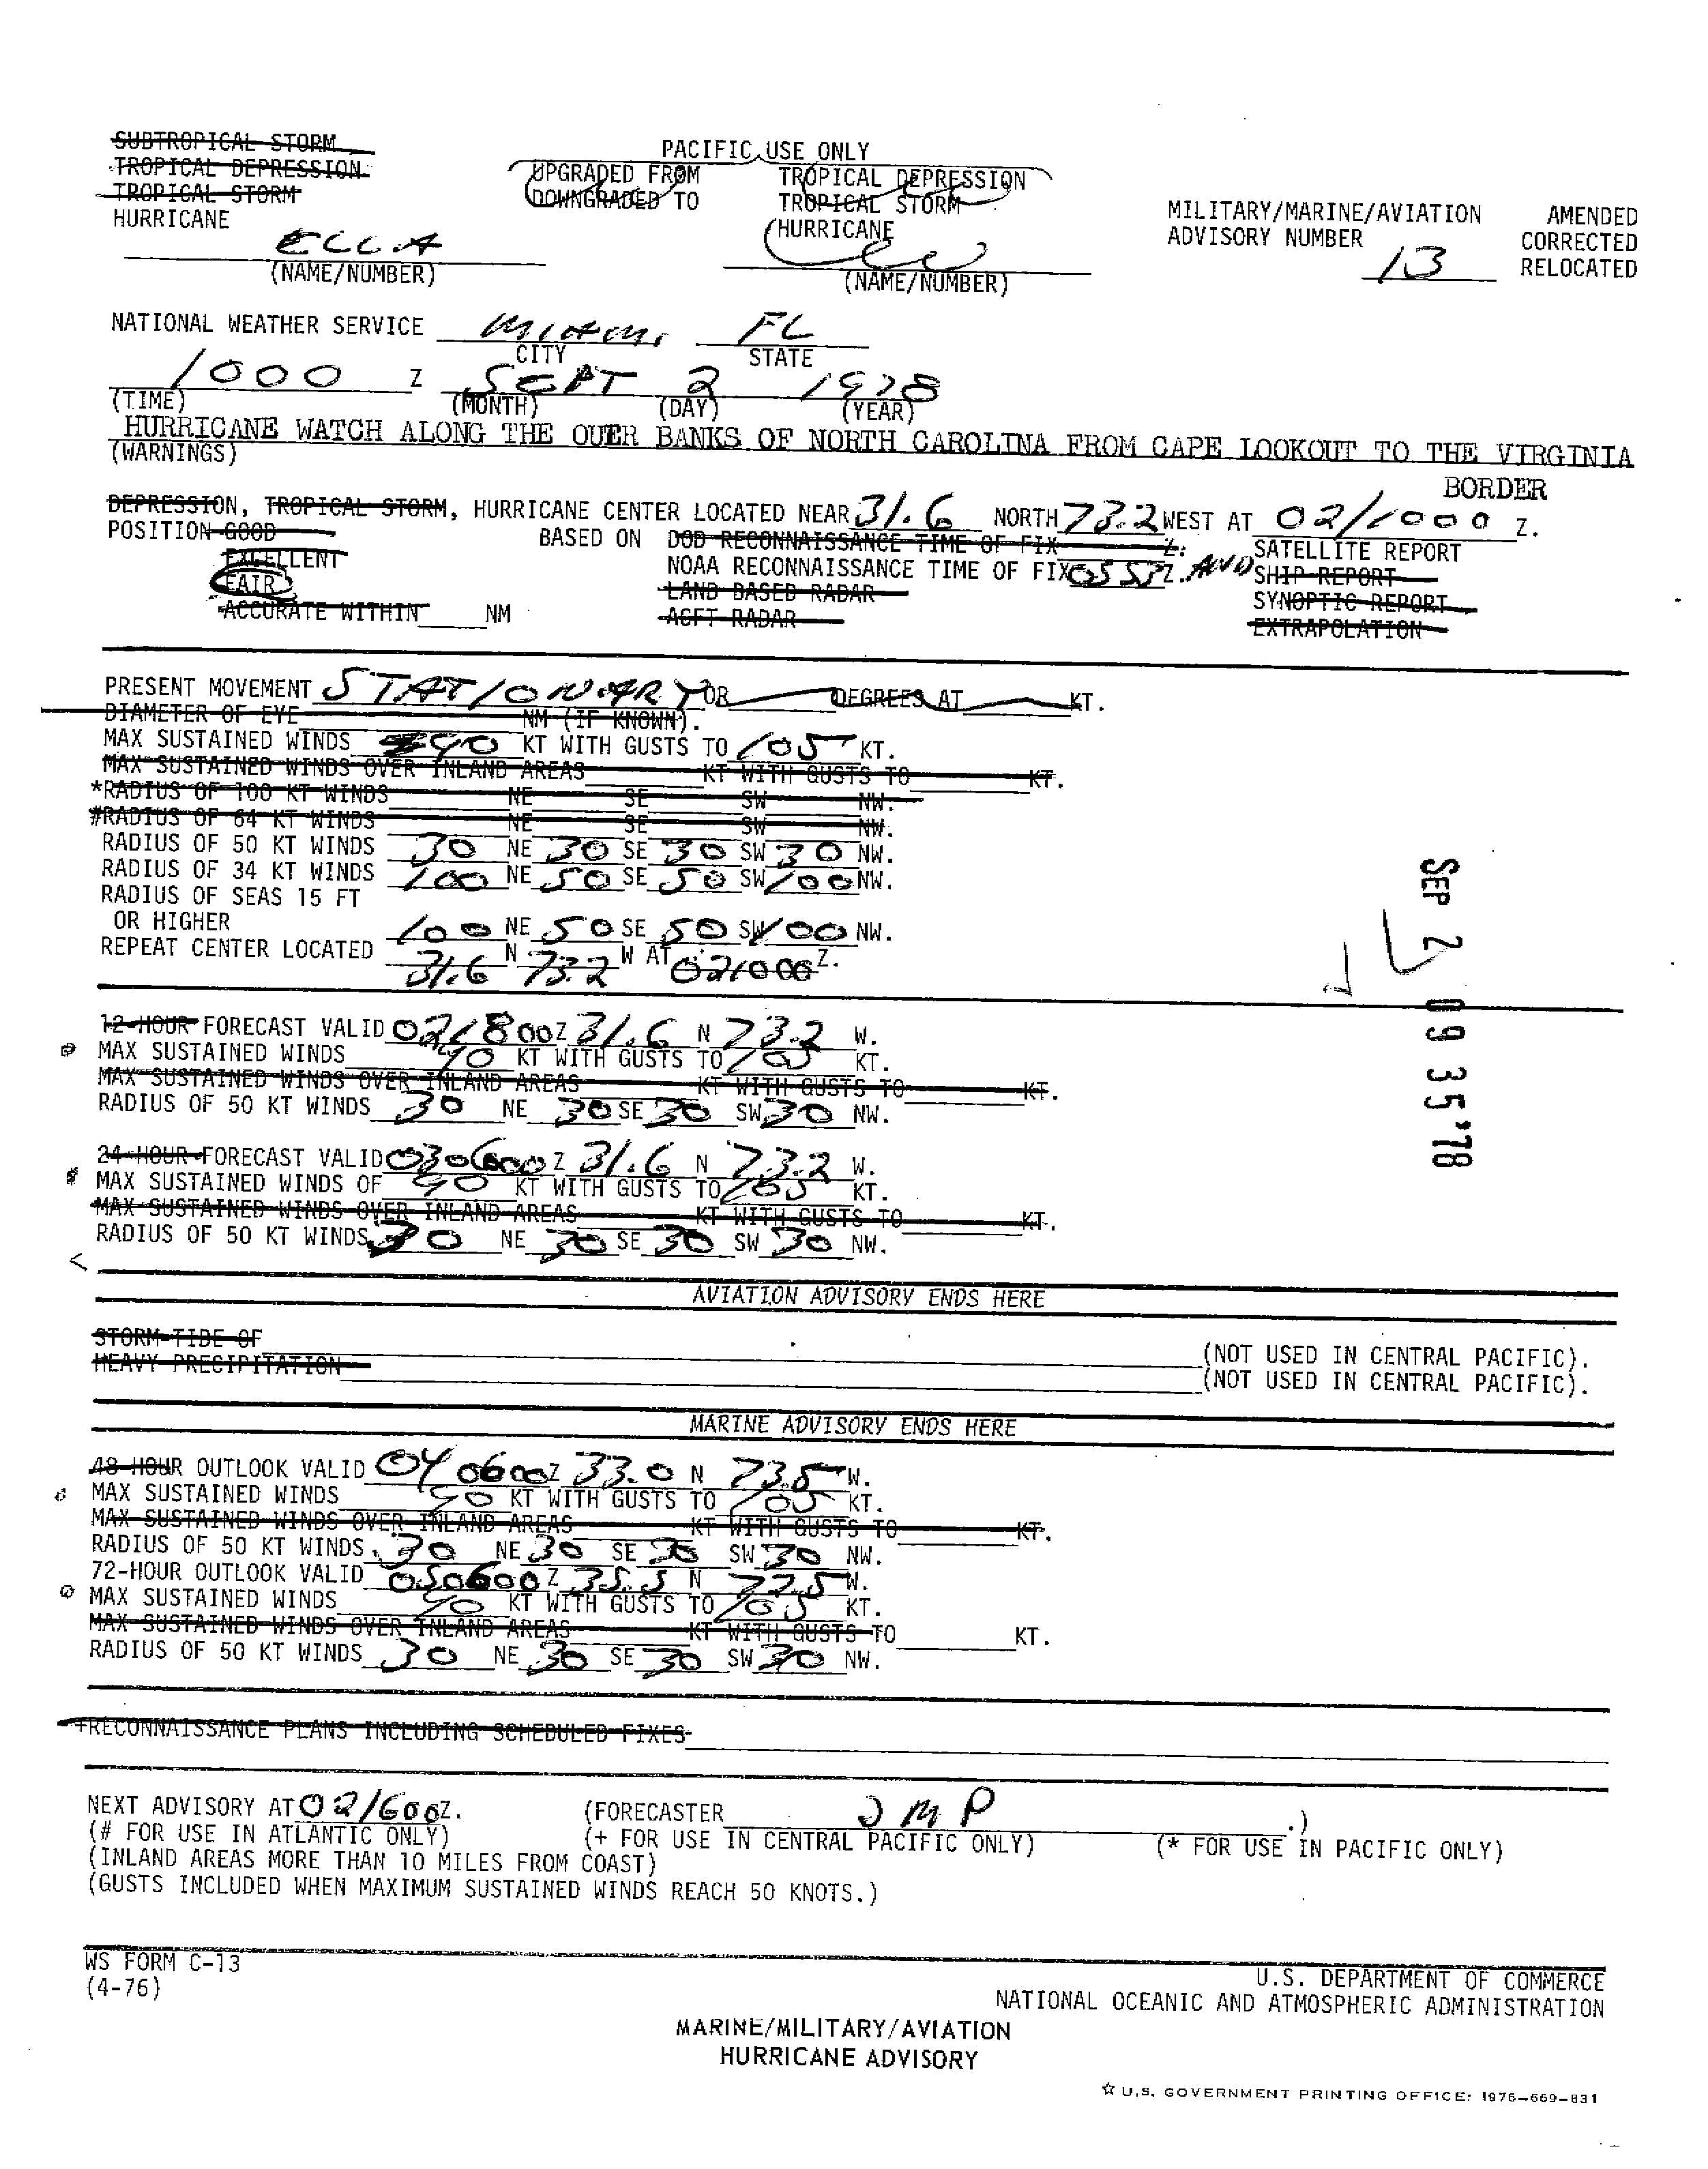 SUBTROPICAL STORM
TROPICAL DEPRESSION
TROPICAL STORM
HURRICANE
ELLA
(NAME/NUMBER)
PACIFIC USE ONLY
UPGRADED FROM TROPICAL DEPRESSION
DOWNGRADED TO TROPICAL STORM
HURRICANE
(NAME/NUMBER)
MILITARY/MARINE/AVIATION AMENDED
ADVISORY NUMBER 13 CORRECTED
RELOCATED
NATIONAL WEATHER SERVICE MIAMI FL
CITY STATE
1000 Z SEPT 2 1978
(TIME) (MONTH) (DAY) (YEAR)
HURRICANE WATCH ALONG THE OUER BANKS OF NORTH CAROLINA FROM CAPE LOOKOUT TO THE VIRGINIA
(WARNINGS)
BORDER
DEPRESSION, TROPICAL STORM, HURRICANE CENTER LOCATED NEAR 31.6 NORTH 73.2 WEST AT 02/1000 Z.
POSITION GOOD BASED ON DOD RECONNAISSANCE TIME OF FIX Z. SATELLITE REPORT
EXCELLENT NOAA RECONNAISSANCE TIME OF FIX Z. AND SHIP REPORT
FAIR LAND BASED RADAR SYNOPTIC REPORT
ACCURATE WITHIN NM ACFT RADAR EXTRAPOLATION
PRESENT MOVEMENT STATIONARY OR DEGREES AT KT.
DIAMETER OF EYE NM (IF KNOWN).
MAX SUSTAINED WINDS 90 KT WITH GUSTS TO 105 KT.
MAX SUSTAINED WINDS OVER INLAND AREAS KT WITH GUSTS TO KT.
*RADIUS OF 100 KT WINDS NE SE SW NW.
#RADIUS OF 64 KT WINDS NE SE SW NW.
RADIUS OF 50 KT WINDS 30 NE 30 SE 30 SW 30 NW.
RADIUS OF 34 KT WINDS 100 NE 50 SE 50 SW 100 NW.
RADIUS OF SEAS 15 FT
OR HIGHER 100 NE 50 SE 50 SW 100 NW.
REPEAT CENTER LOCATED 31.6 N 73.2 W AT 021000 Z.
SEP 2 09 35 '78
12-HOUR FORECAST VALID 021800 Z 31.6 N 73.2 W.
MAX SUSTAINED WINDS 90 KT WITH GUSTS TO 105 KT.
MAX SUSTAINED WINDS OVER INLAND AREAS KT WITH GUSTS TO KT.
RADIUS OF 50 KT WINDS 30 NE 30 SE 30 SW 30 NW.
24-HOUR FORECAST VALID 030600 Z 31.6 N 73.2 W.
MAX SUSTAINED WINDS OF 90 KT WITH GUSTS TO 105 KT.
MAX SUSTAINED WINDS OVER INLAND AREAS KT WITH GUSTS TO KT.
RADIUS OF 50 KT WINDS 30 NE 30 SE 30 SW 30 NW.
AVIATION ADVISORY ENDS HERE
STORM TIDE OF (NOT USED IN CENTRAL PACIFIC).
HEAVY PRECIPITATION (NOT USED IN CENTRAL PACIFIC).
MARINE ADVISORY ENDS HERE
48-HOUR OUTLOOK VALID 040600 Z 33.0 N 73.5 W.
MAX SUSTAINED WINDS 90 KT WITH GUSTS TO 105 KT.
MAX SUSTAINED WINDS OVER INLAND AREAS KT WITH GUSTS TO KT.
RADIUS OF 50 KT WINDS 30 NE 30 SE 30 SW 30 NW.
72-HOUR OUTLOOK VALID 050600 Z 35.5 N 72.5 W.
MAX SUSTAINED WINDS 90 KT WITH GUSTS TO 105 KT.
MAX SUSTAINED WINDS OVER INLAND AREAS KT WITH GUSTS TO KT.
RADIUS OF 50 KT WINDS 30 NE 30 SE 30 SW 30 NW.
+RECONNAISSANCE PLANS INCLUDING SCHEDULED FIXES
NEXT ADVISORY AT 021600 Z. (FORECASTER JMP .)
(# FOR USE IN ATLANTIC ONLY) (+ FOR USE IN CENTRAL PACIFIC ONLY) (* FOR USE IN PACIFIC ONLY)
(INLAND AREAS MORE THAN 10 MILES FROM COAST)
(GUSTS INCLUDED WHEN MAXIMUM SUSTAINED WINDS REACH 50 KNOTS.)
WS FORM C-13
(4-76)
U.S. DEPARTMENT OF COMMERCE
NATIONAL OCEANIC AND ATMOSPHERIC ADMINISTRATION
MARINE/MILITARY/AVIATION
HURRICANE ADVISORY
☆ U.S. GOVERNMENT PRINTING OFFICE: 1976-669-831